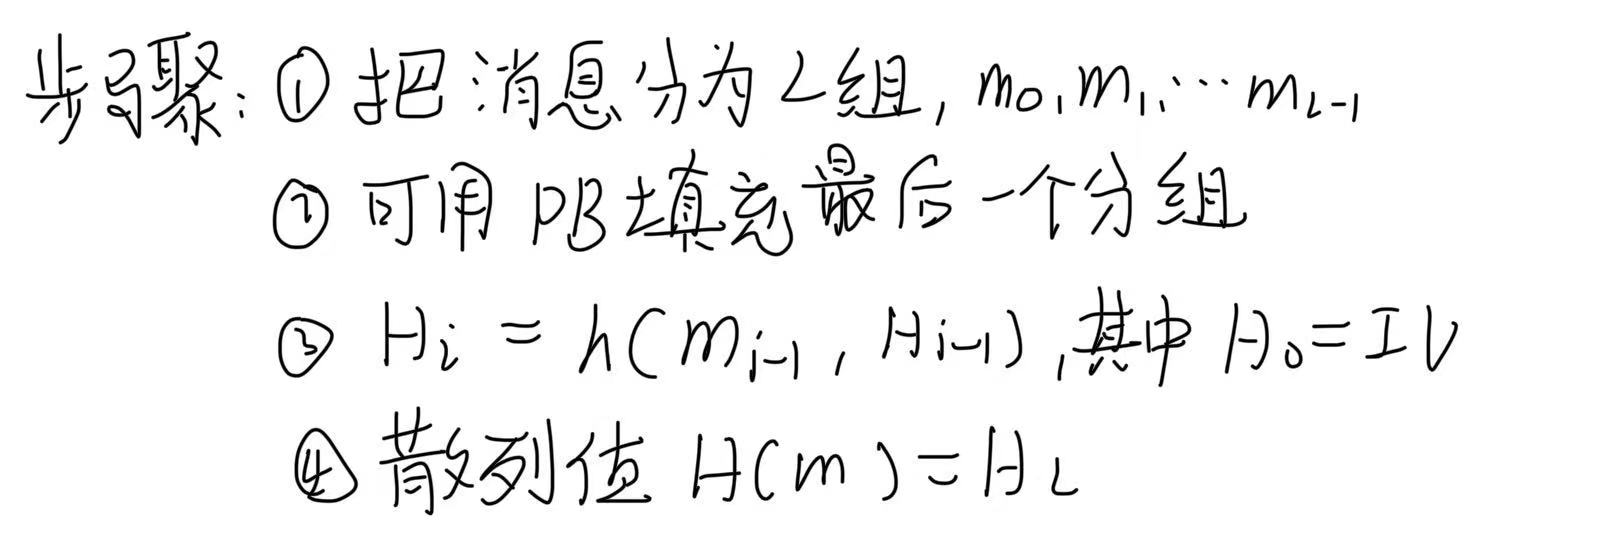 步骤: ① 把消息分为L组, m₀, m₁, … m_{L-1}
② 可用 PB填充最后一个分组
③ H_i = h(m_{i-1}, H_{i-1}), 其中 H₀=IV
④ 散列值 H(m)=H_L